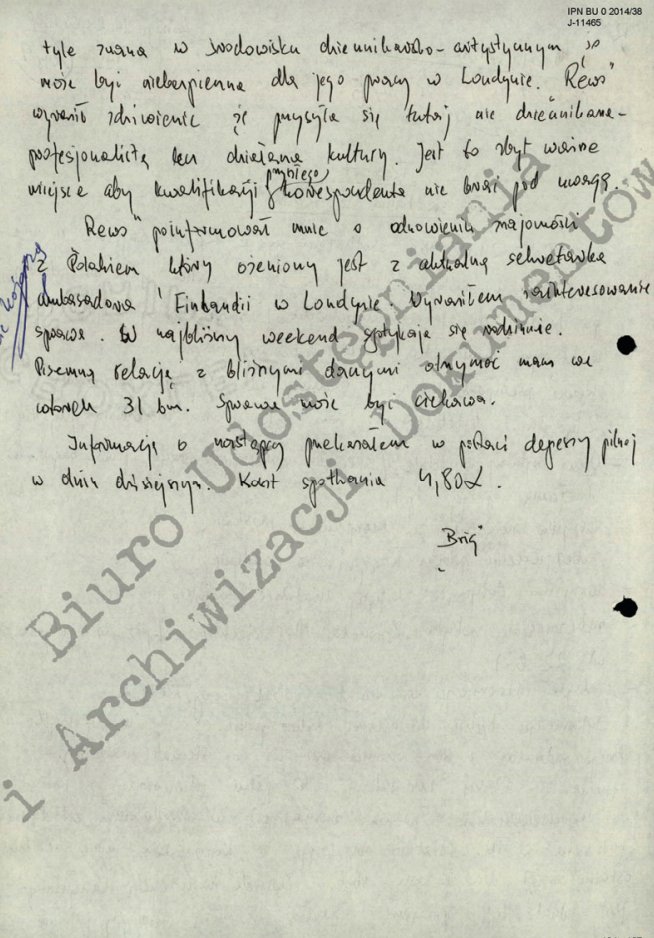 IPN BU 0 2014/38
J-11465
tyle znana w środowisku dziennikarsko-artystycznym że
może być niebezpieczna dla jego pracy w Londynie. "Rews"
wyraził zdziwienie że przysyła się tutaj nie dziennikarza-
profesjonalistę lecz działacza kultury. Jest to zbyt ważne
miejsce aby kwalifikacji przyszłego korespondenta nie brać pod uwagę.
"Rews" poinformował mnie o odnowieniu znajomości
z Polakiem który ożeniony jest z aktualną sekretarką
ambasadora Finlandii w Londynie. Wyraziłem zainteresowanie
sprawą. W najbliższy weekend spotykają się rodzinnie.
Pisemną relację z bliższymi danymi otrzymać mam we
wtorek 31 bm. Sprawa może być ciekawa.
Informację o następcy przekazałem w postaci depeszy pilnej
w dniu dzisiejszym. Koszt spotkania 4,80£.
"Brig"
Biuro Udostępniania
i Archiwizacji Dokumentów